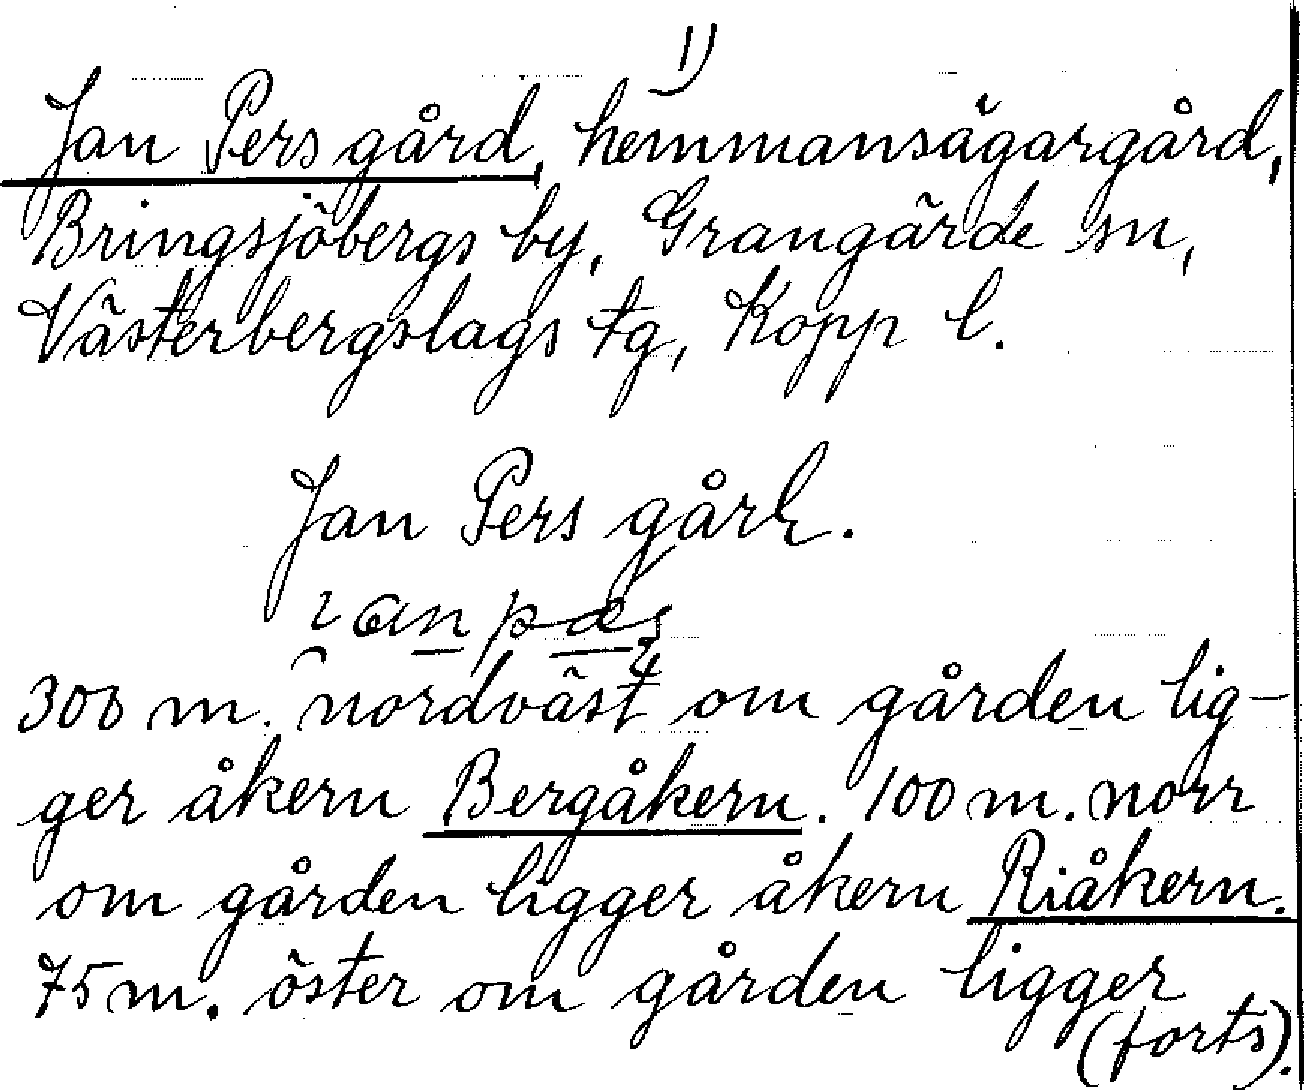 1)
Jan Pers gård, hemmansägargård,
Bringsjöbergs by, Grangärde sn,
Västerbergslags tg, Kopp l.
Jan Pers gård.
300 m. nordväst om gården lig-
ger åkern Bergåkern. 100 m. norr
om gården ligger åkern Riåkern.
75 m. öster om gården ligger
(forts).